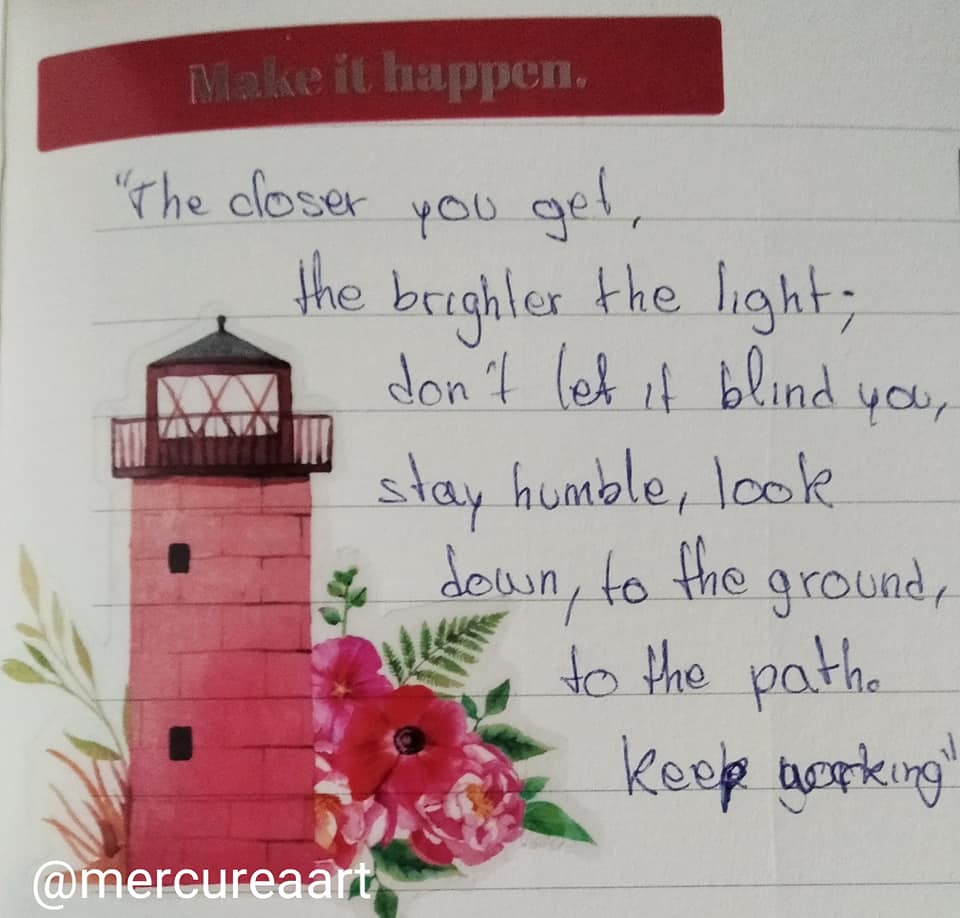 Make it happen.
"The closer you get,
the brighter the light;
don't let it blind you,
stay humble, look
down, to the ground,
to the path.
Keep working"
@mercureaart